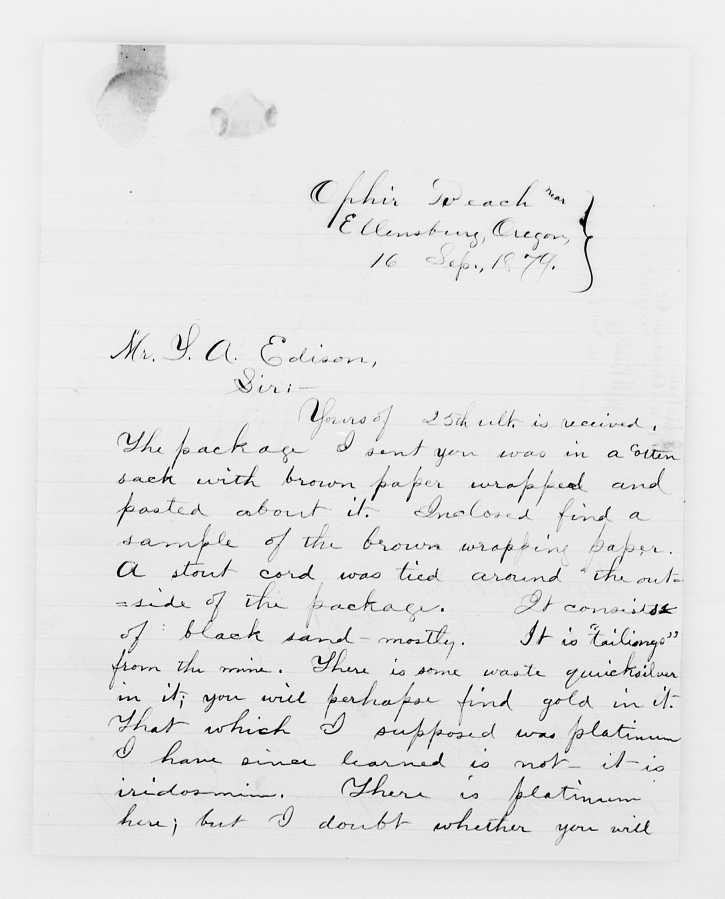 Ophir Beach near
Ellensburg, Oregon,
16 Sep., 1879.
Mr. T. A. Edison,
Sir:—
Yours of 25th ult. is received.
The package I sent you was in a cotten
sack with brown paper wrapped and
pasted about it. Inclosed find a
sample of the brown wrapping paper.
A stout cord was tied around the out=
=side of the package. It consists
of black sand—mostly. It is "tailings"
from the mine. There is some waste quicksilver
in it; you will perhaps find gold in it.
That which I supposed was platinum
I have since learned is not—it is
iridosmin. There is platinum
here; but I doubt whether you will